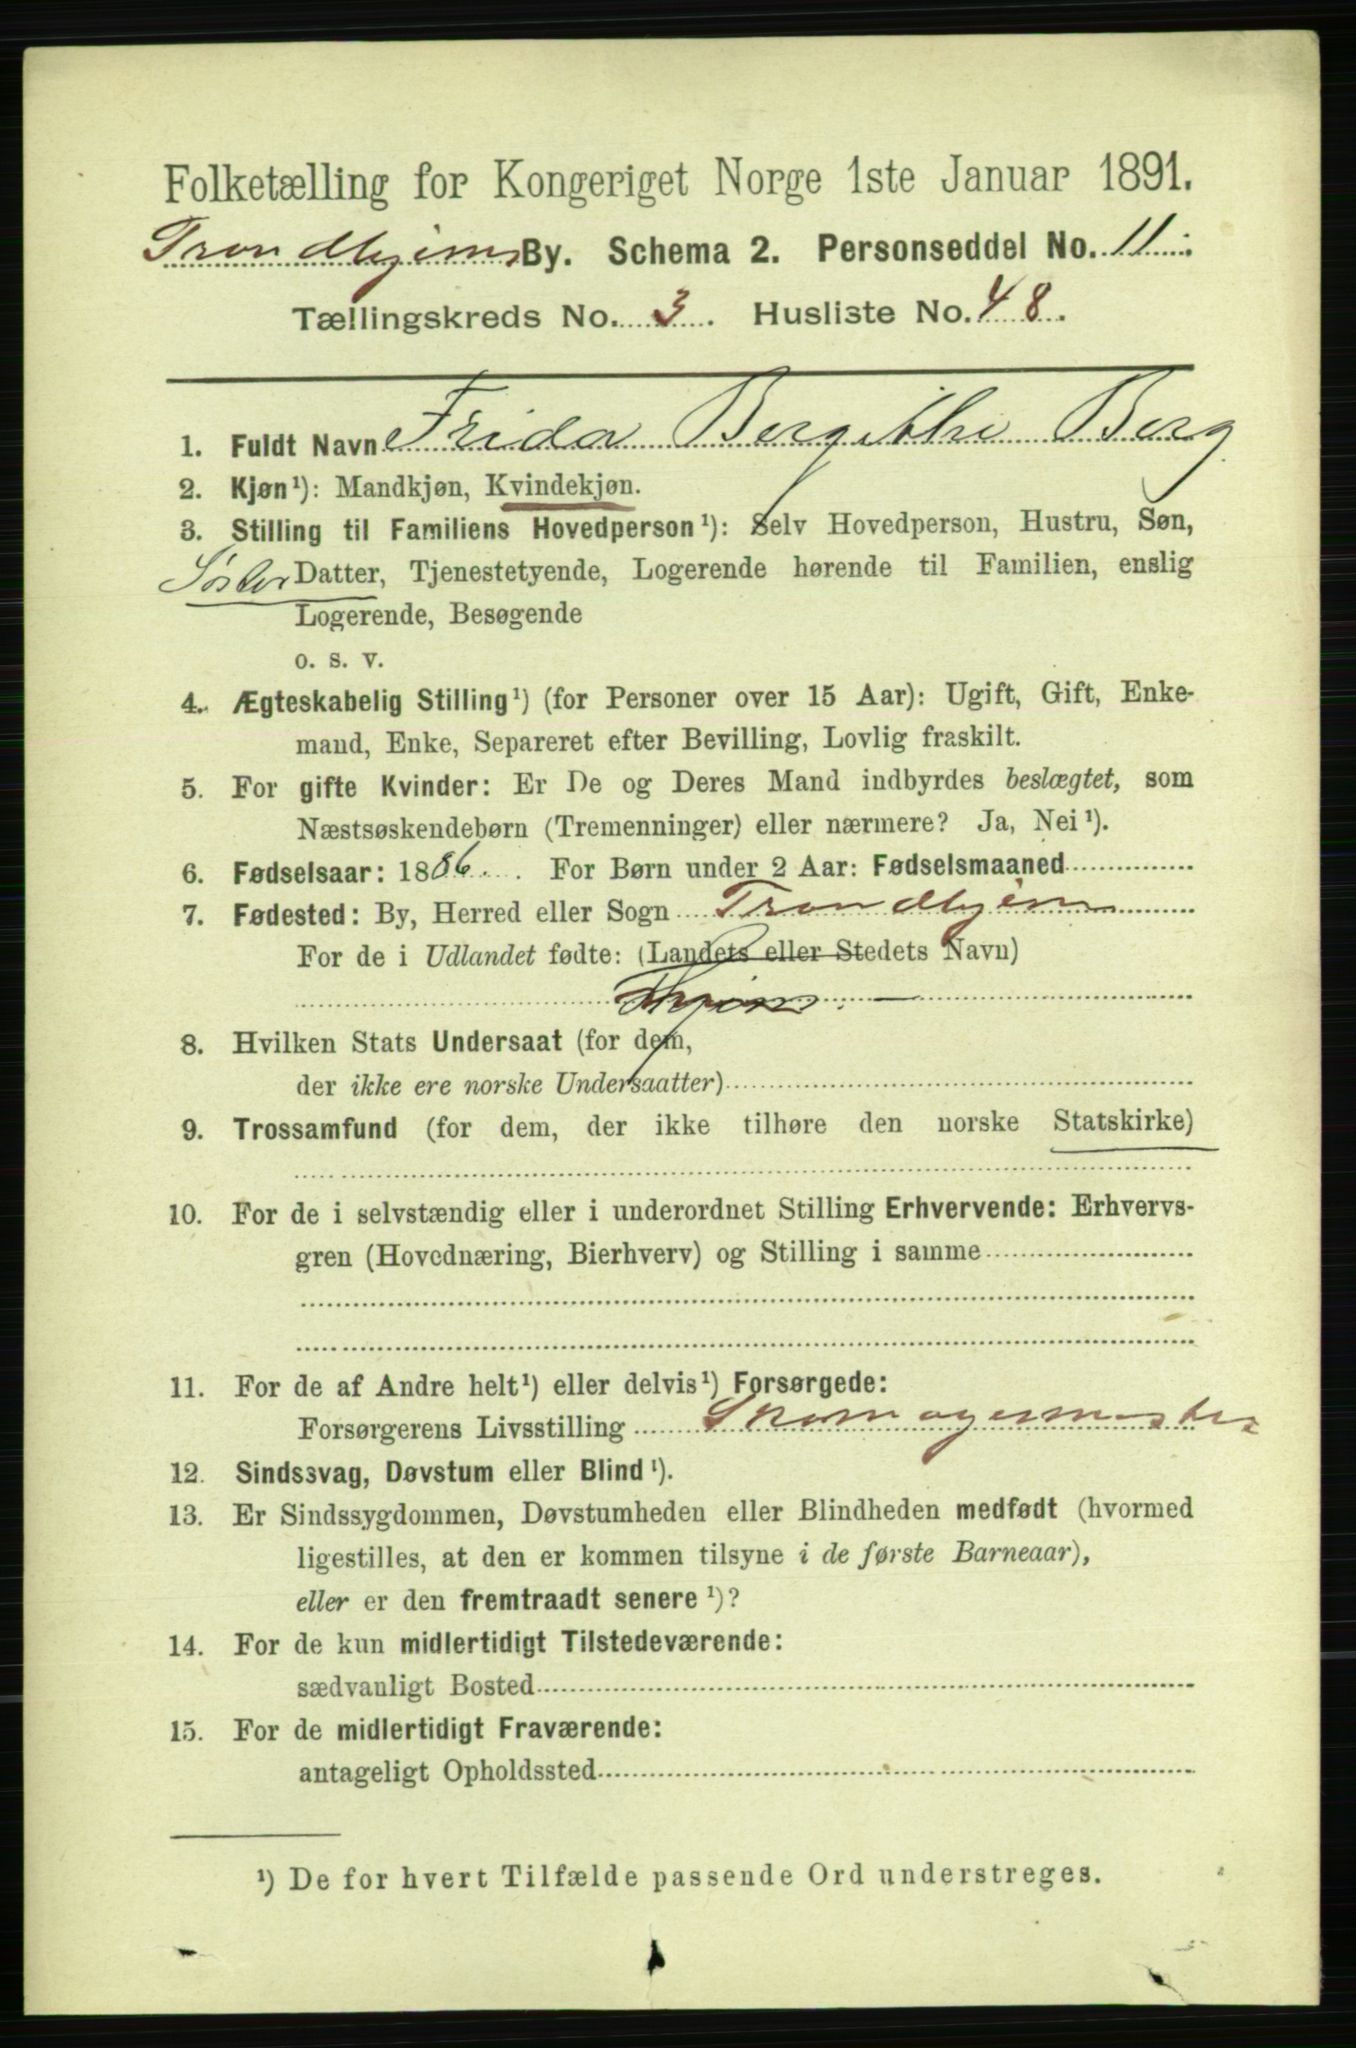 Folketælling for Kongeriget Norge 1ste Januar 1891.
Trondhjems By. Schema 2. Personseddel No. 11.
Tællingskreds No. 3. Husliste No. 48.
1. Fuldt Navn Frida Bergithe Berg
2. Kjøn¹): Mandkjøn, Kvindekjøn.
3. Stilling til Familiens Hovedperson¹): Selv Hovedperson, Hustru, Søn,
Søster Datter, Tjenestetyende, Logerende hørende til Familien, enslig
Logerende, Besøgende
o. s. v.
4. Ægteskabelig Stilling¹) (for Personer over 15 Aar): Ugift, Gift, Enke-
mand, Enke, Separeret efter Bevilling, Lovlig fraskilt.
5. For gifte Kvinder: Er De og Deres Mand indbyrdes beslægtet, som
Næstsøskendebørn (Tremenninger) eller nærmere? Ja, Nei¹).
6. Fødselsaar: 1886. For Børn under 2 Aar: Fødselsmaaned
7. Fødested: By, Herred eller Sogn Trondhjem
For de i Udlandet fødte: (Landets eller Stedets Navn)
8. Hvilken Stats Undersaat (for dem,
der ikke ere norske Undersaatter)
9. Trossamfund (for dem, der ikke tilhøre den norske Statskirke)
10. For de i selvstændig eller i underordnet Stilling Erhvervende: Erhvervs-
gren (Hovednæring, Bierhverv) og Stilling i samme
11. For de af Andre helt¹) eller delvis¹) Forsørgede:
Forsørgerens Livsstilling Skomagermester
12. Sindssvag, Døvstum eller Blind¹).
13. Er Sindssygdommen, Døvstumheden eller Blindheden medfødt (hvormed
ligestilles, at den er kommen tilsyne i de første Barneaar),
eller er den fremtraadt senere¹)?
14. For de kun midlertidigt Tilstedeværende:
sædvanligt Bosted
15. For de midlertidigt Fraværende:
antageligt Opholdssted
¹) De for hvert Tilfælde passende Ord understreges.